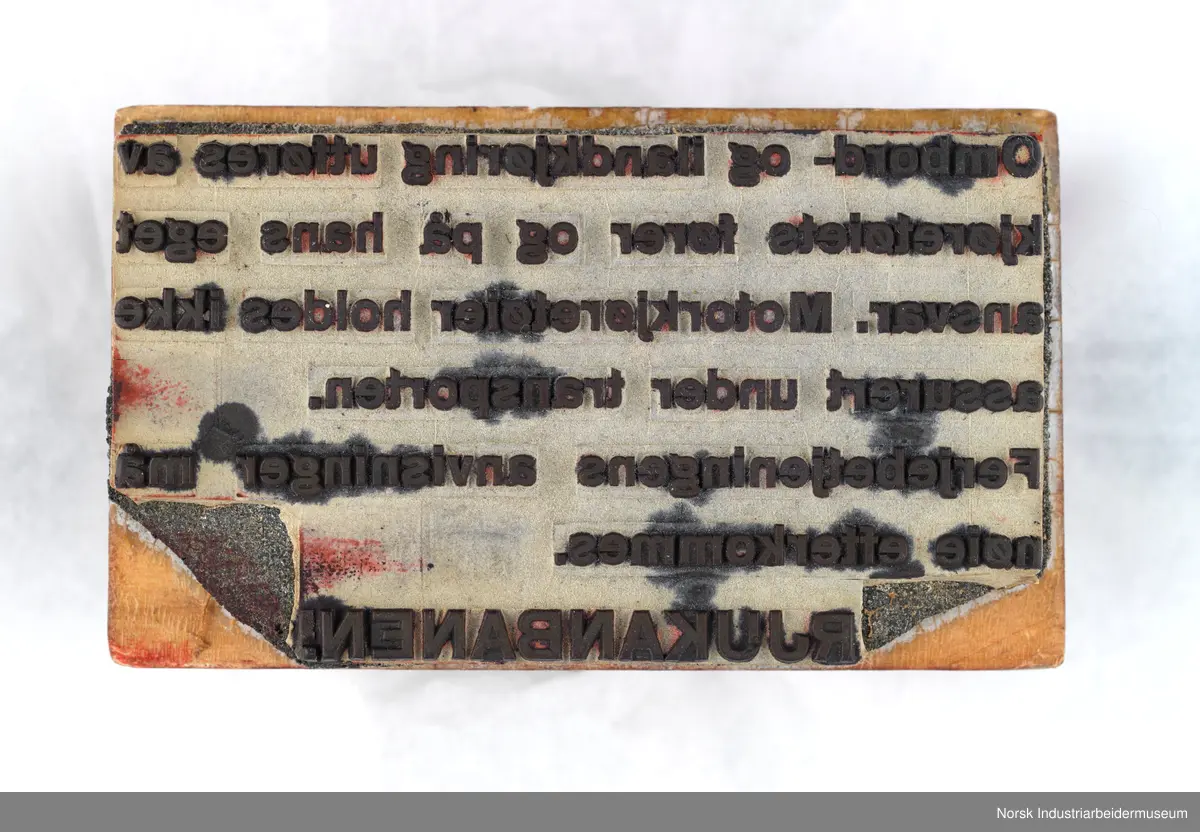 Ombord- og ilandkjøring utføres av
kjøretøiets fører og på hans eget
ansvar. Motorkjøretøier holdes ikke
assurert under transporten.
Ferjebetjeningens anvisninger må
nøie efterkommes.
RJUKANBANEN!
Norsk Industriarbeidermuseum